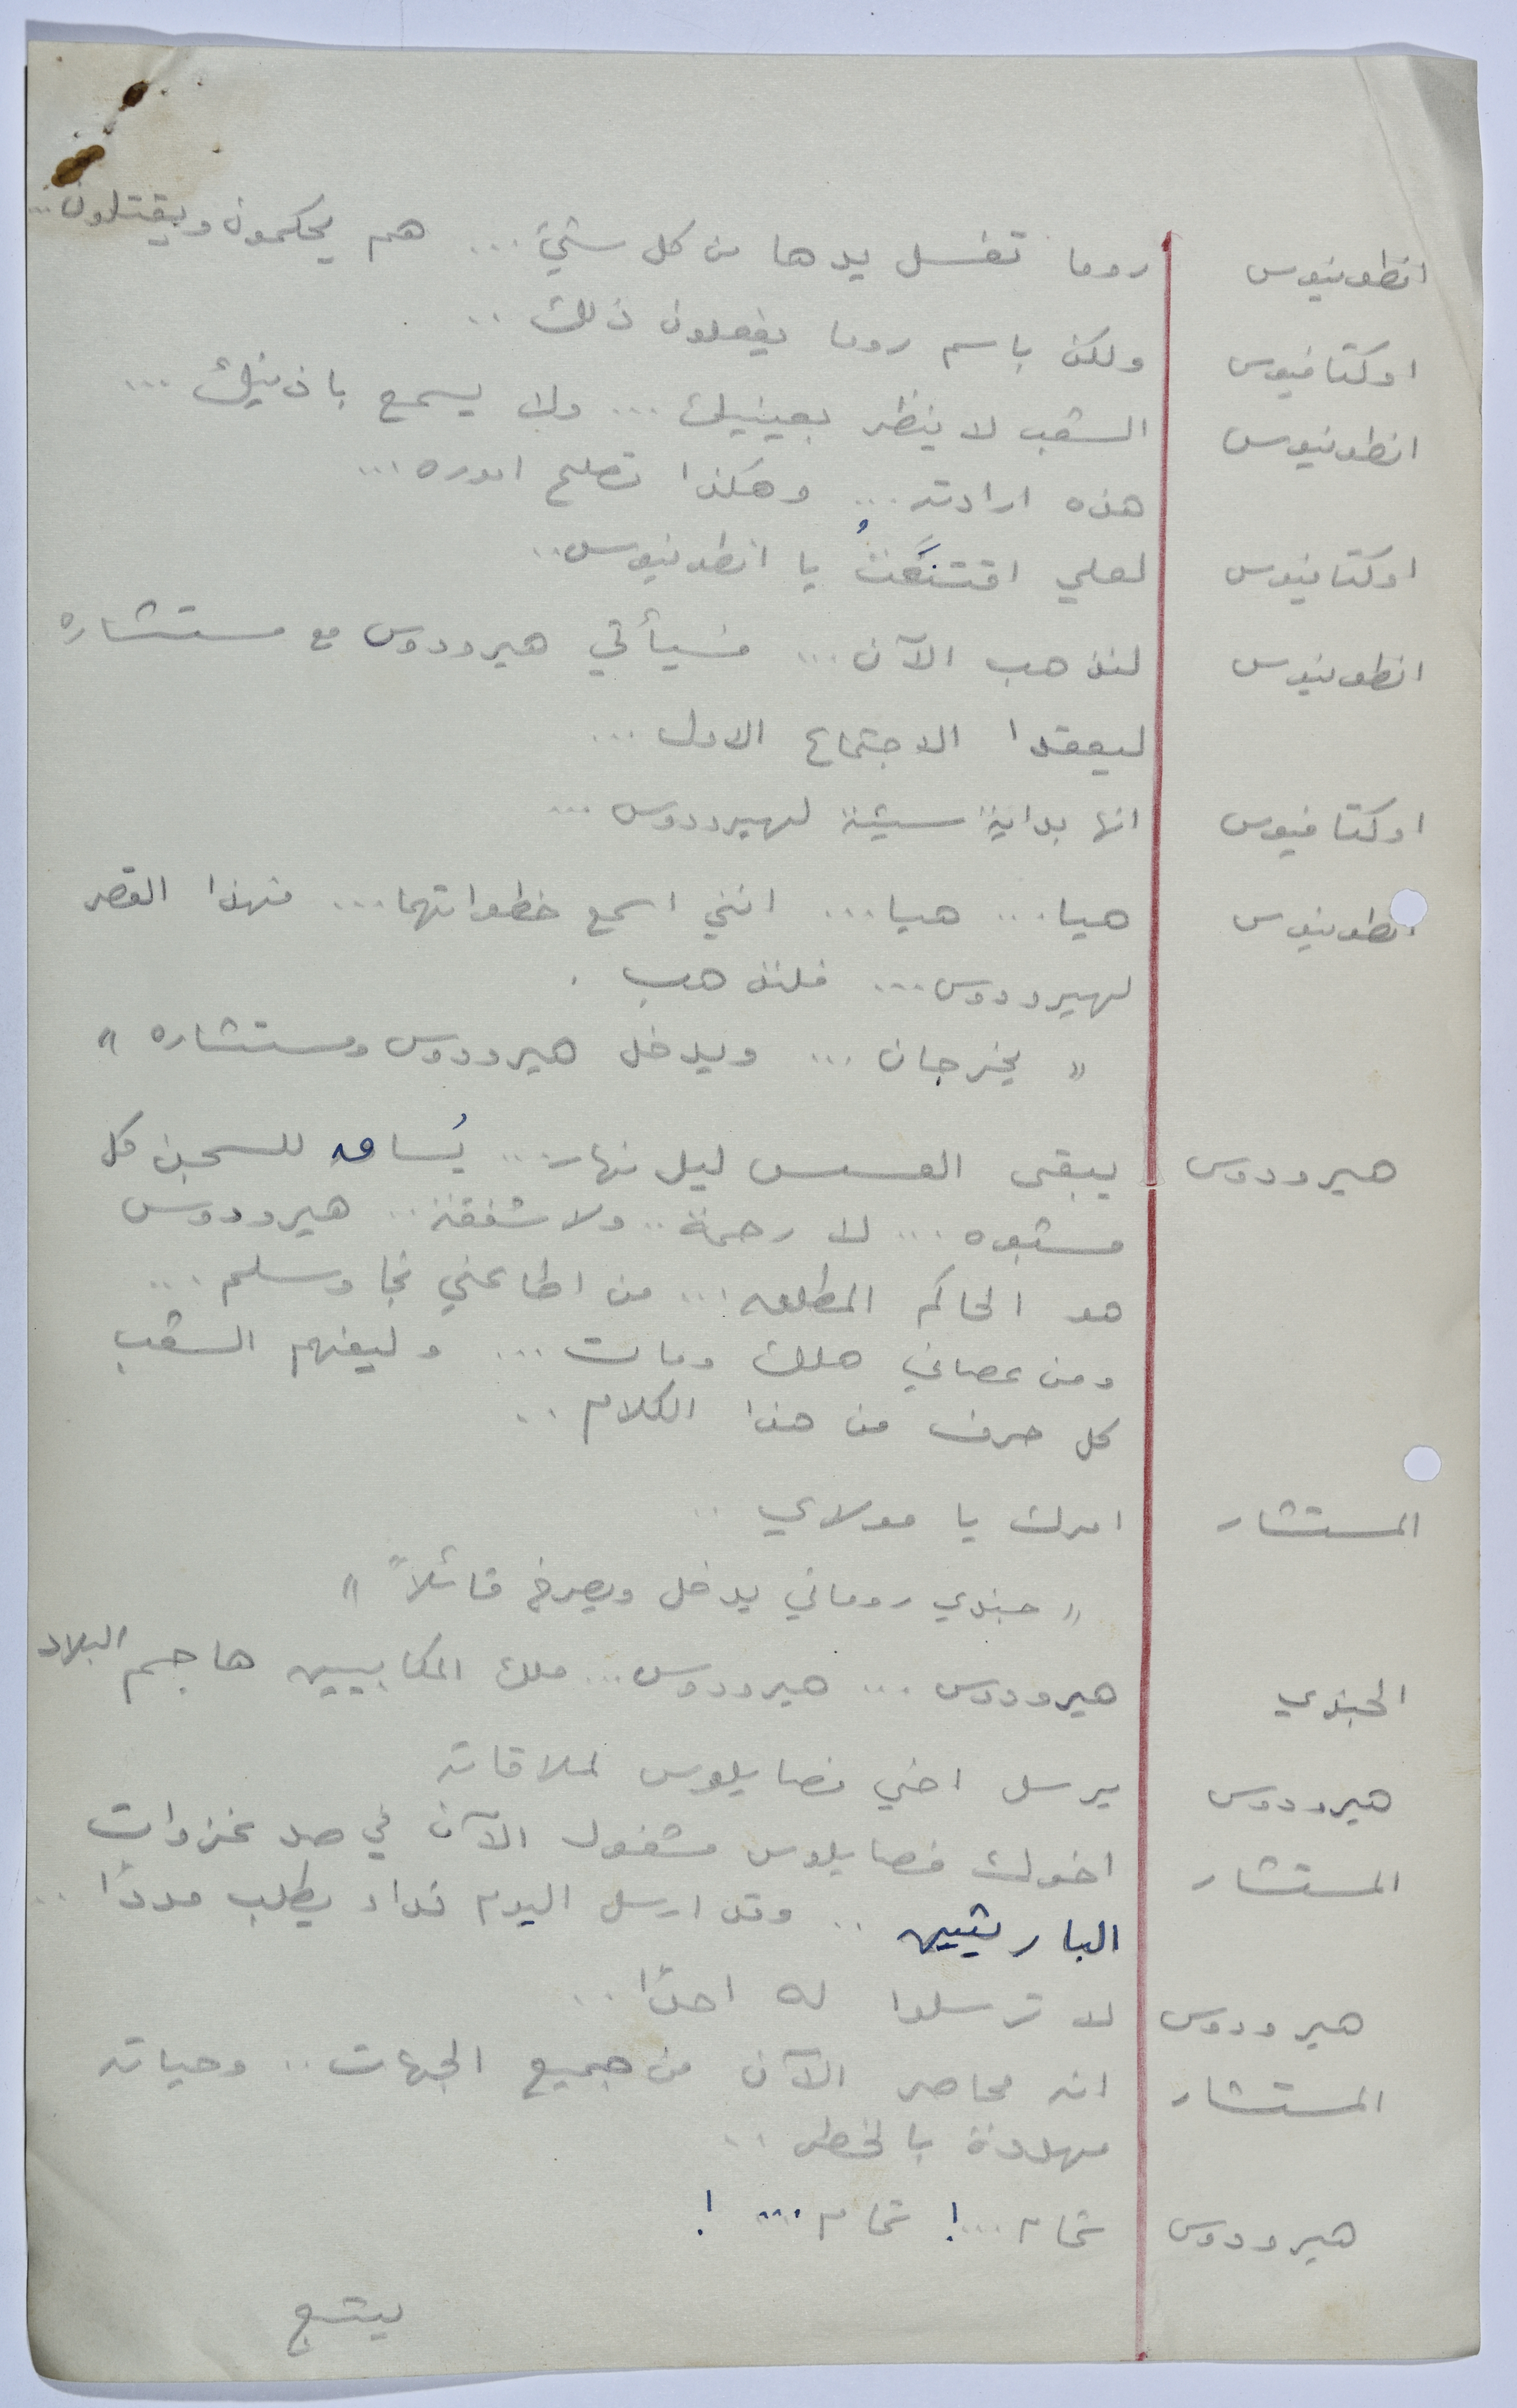 انطونيوس روما تغسل يدها من كل شيئ ... هم يحكمون ويقتلون ...
اوكتافيوس ولكن باسم روما يفعلون ذلك ..
انطونيوس الشعب لا ينظر بعينيك ... ولا يسمع باذنيك ...
هذه ارادته ... وهكذا تصلح اموره ...
اوكتافيوس لعلي اقتنَعتُ يا انطونيوس ..
انطونيوس لنذهب الآن ... فسيأتي هيرودوس مع مستشاره
ليعقدا الاجتماع الاول ...
اوكتافيوس انها بداية سيئة لهيرودوس ...
انطونيوس هيا ... هيا ... انني اسمع خطواتهما ... فهذا القصر
لهيرودوس ... فلنذهب .
« يخرجان ... ويدخل هيرودوس ومستشاره »
هيرودوس يبقى العسس ليل نهار ... يُساق للسجن كل
مشبوه ... لا رحمة .. ولا شفقة .. هيرودوس
هو الحاكم المطلق ... من اطاعني نجا وسلم ...
ومن عصاني هلك ومات ... وليفهم الشعب
كل حرف من هذا الكلام ..
المستشار امرك يا مولاي ..
« جندي روماني يدخل ويصرخ قائلاً »
الجندي هيرودوس ... هيرودوس ... ملك المكابيين هاجم البلاد
هيرودوس يرسل اخي فصايلوس لملاقاته
المستشار اخوك فصايلوس مشغول الآن في صد غزوات
البارثيين .. وقد ارسل اليوم قواد يطلب مددًا ..
هيرودوس لا ترسلوا له احدًا ..
المستشار انه محاصر الآن من جميع الجهات .. وحياته
مهددة بالخطر ..
هيرودوس تمام ...! تمام ... !
يتبع